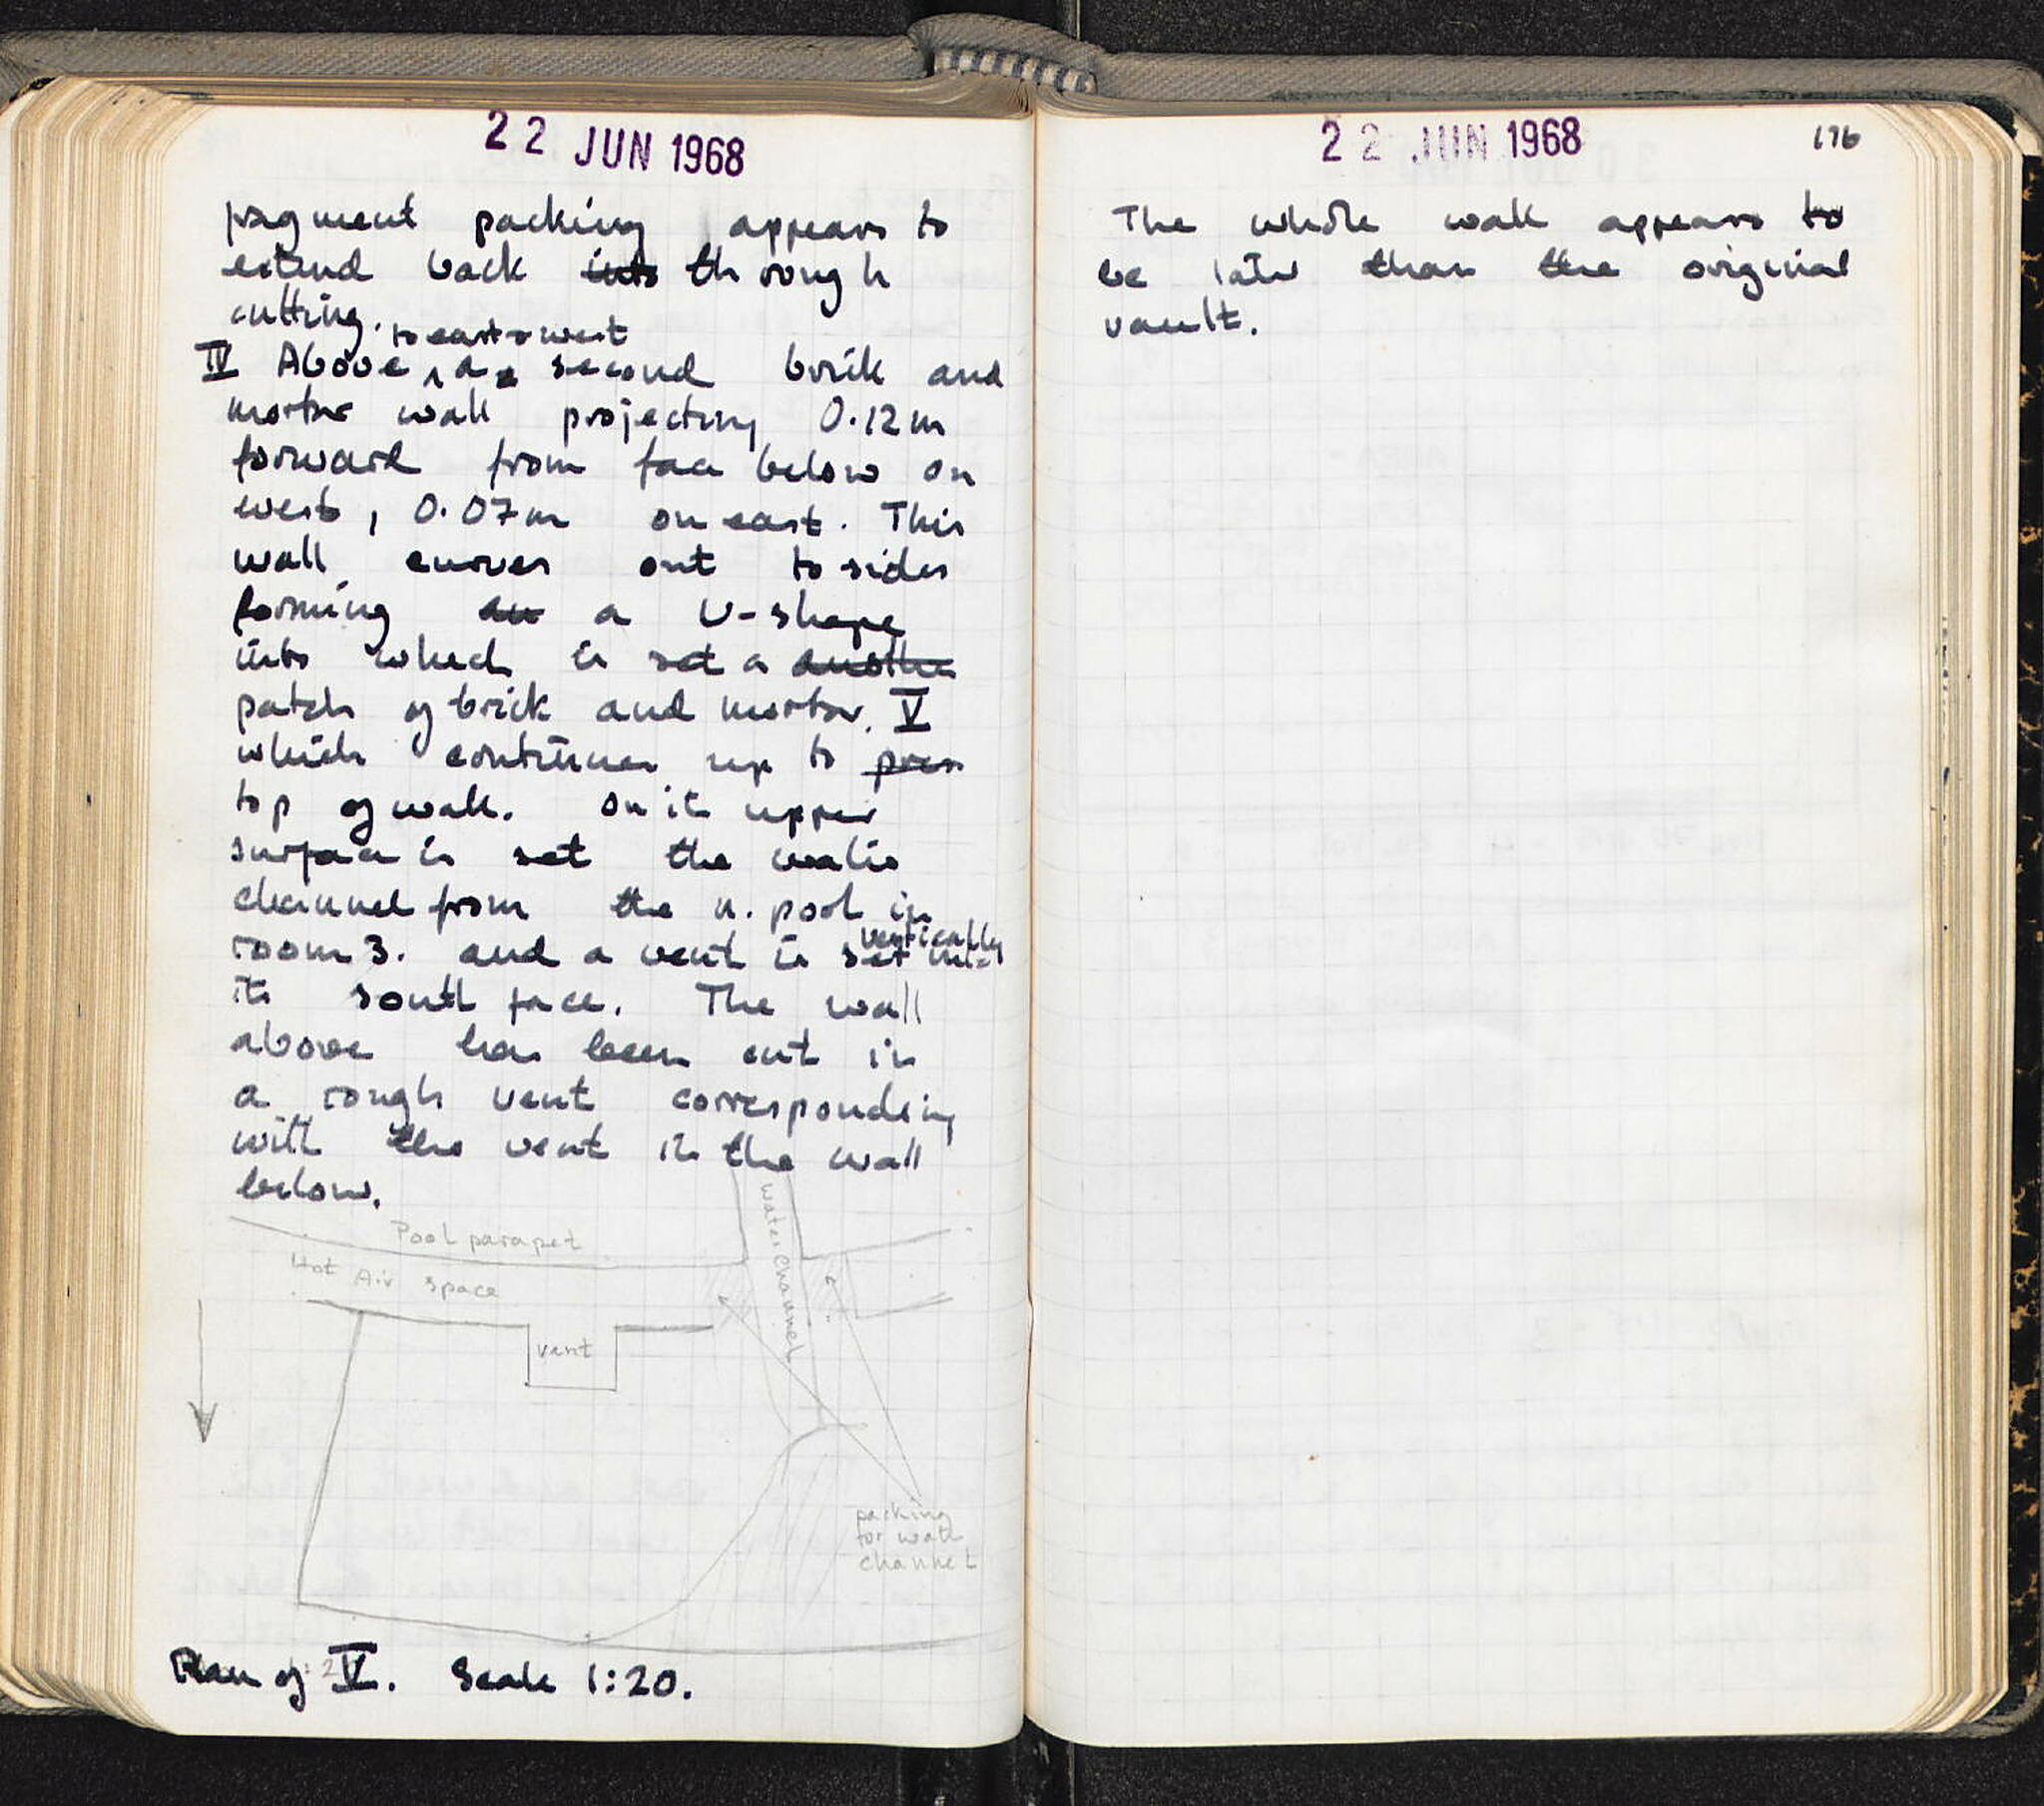 22 JUN 1968
fragment packing appears to
extend back into through
cutting.
to east & west
IV Above, a second brick and
mortar wall projecting 0.12m
forward from face below on
west, 0.07m on east. This
wall curves out to sides
forming an a U-shape
into which is set a another
patch of brick and mortar, V
which continues up to pres
top of wall. On it upper
surface is set the water
channel from the n. pool in
vertically
room 3. and a vent is set into
its south face. The wall
above has been cut in
a rough vent corresponding
with the vent in the wall
below.
water channel
Pool parapet
Hot Air space
vent
packing
for wate
channel
Plan of V. Scale 1:20.
22 JUN 1968
176
The whole wall appears to
be later than the original
vault.